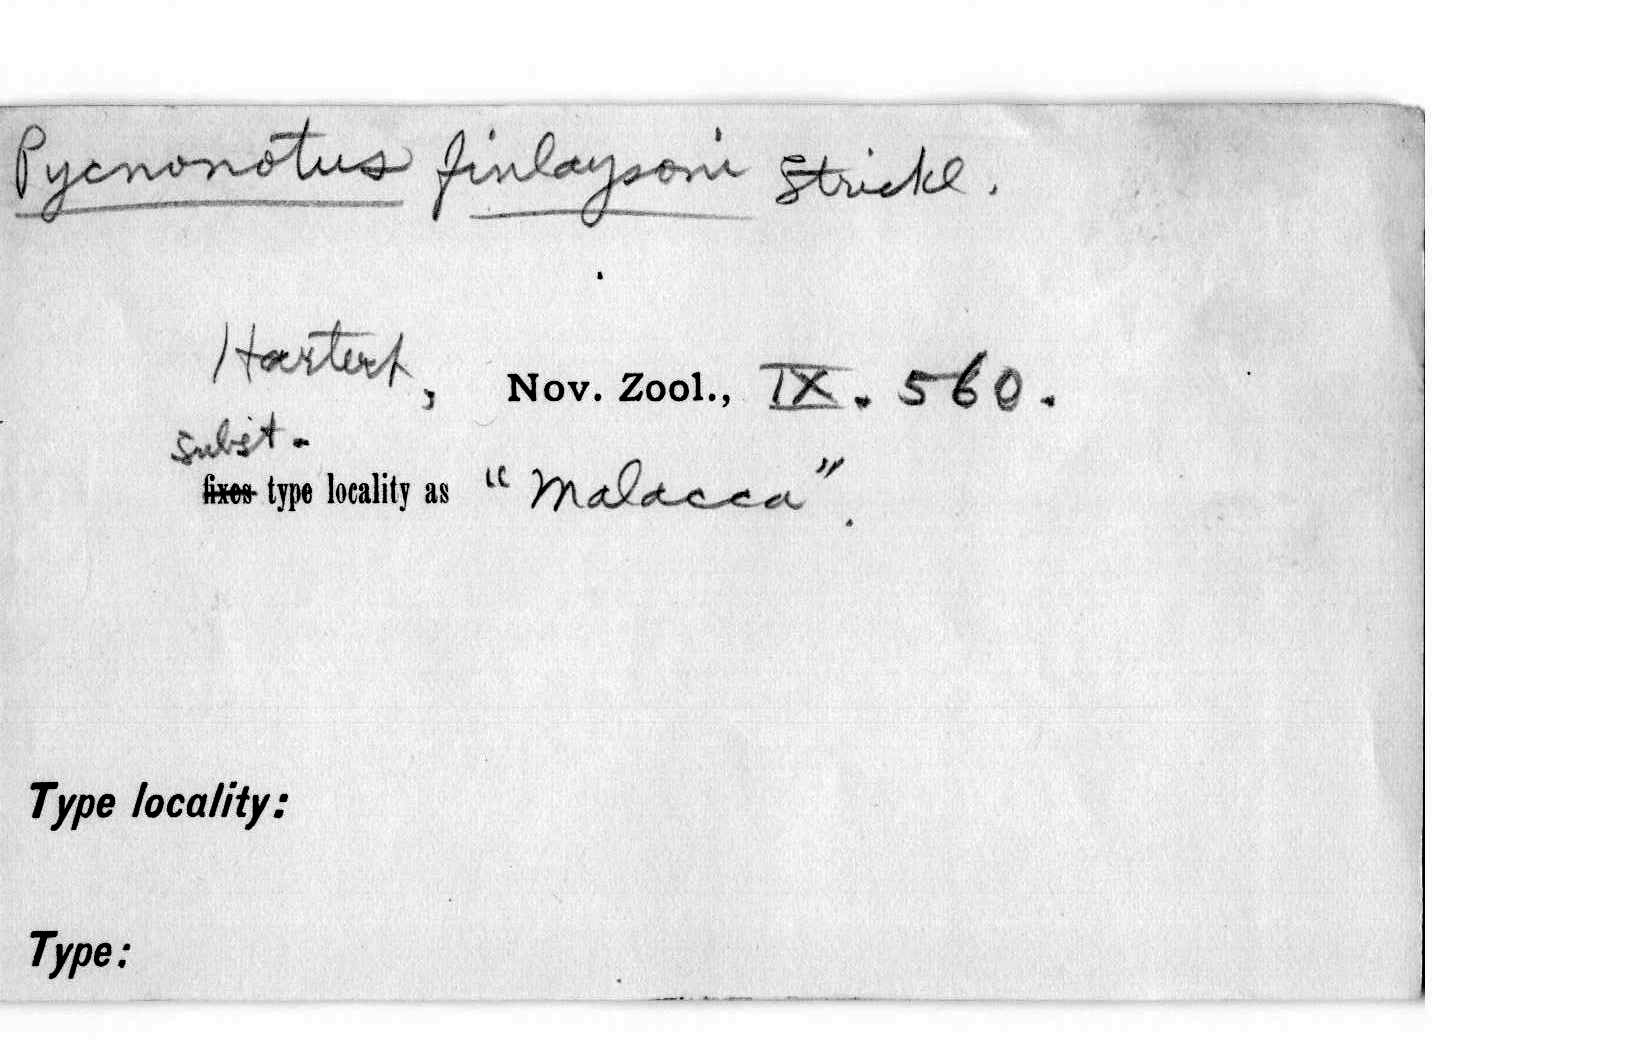 Pycnonotus finlaysoni Strickl.
Hartert, Nov. Zool., IX. 560.
subst.
fixes type locality as "Malacca".
Type locality:
Type: